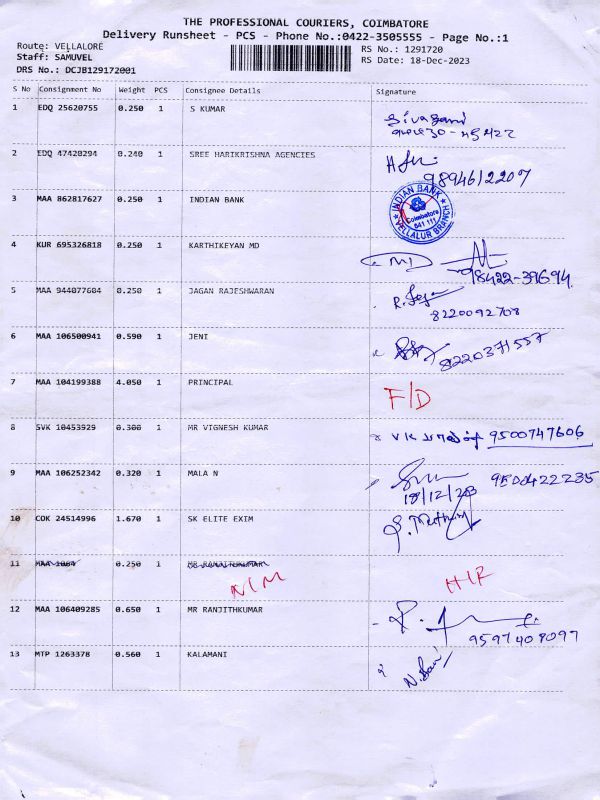 THE PROFESSIONAL COURIERS, COIMBATORE
Delivery Runsheet - PCS - Phone No.:0422-3505555 - Page No.:1
Route: VELLALORE
Staff: SAMUVEL
DRS No.: DCJB129172001
RS No.: 1291720
RS Date: 18-Dec-2023
S No Consignment No Weight PCS Consignee Details Signature
1 EDQ 25620755 0.250 1 S KUMAR
2 EDQ 47420294 0.240 1 SREE HARIKRISHNA AGENCIES
9894612207
3 MAA 862817627 0.250 1 INDIAN BANK
INDIAN BANK
Coimbatore
641 111
VELLALUR BRANCH
4 KUR 695326818 0.250 1 KARTHIKEYAN MD
98422-39694
5 MAA 944077604 0.250 1 JAGAN RAJESHWARAN
8220092708
6 MAA 106500941 0.590 1 JENI
8220371557
7 MAA 104199388 4.050 1 PRINCIPAL F/D
8 SVK 10453929 0.300 1 MR VIGNESH KUMAR 9500747606
9 MAA 106252342 0.320 1 MALA N 9500422235
18/12/23
10 COK 24514996 1.670 1 SK ELITE EXIM
11 0.250 1
N/M
12 MAA 106409285 0.650 1 MR RANJITHKUMAR
9597408097
13 MTP 1263378 0.560 1 KALAMANI